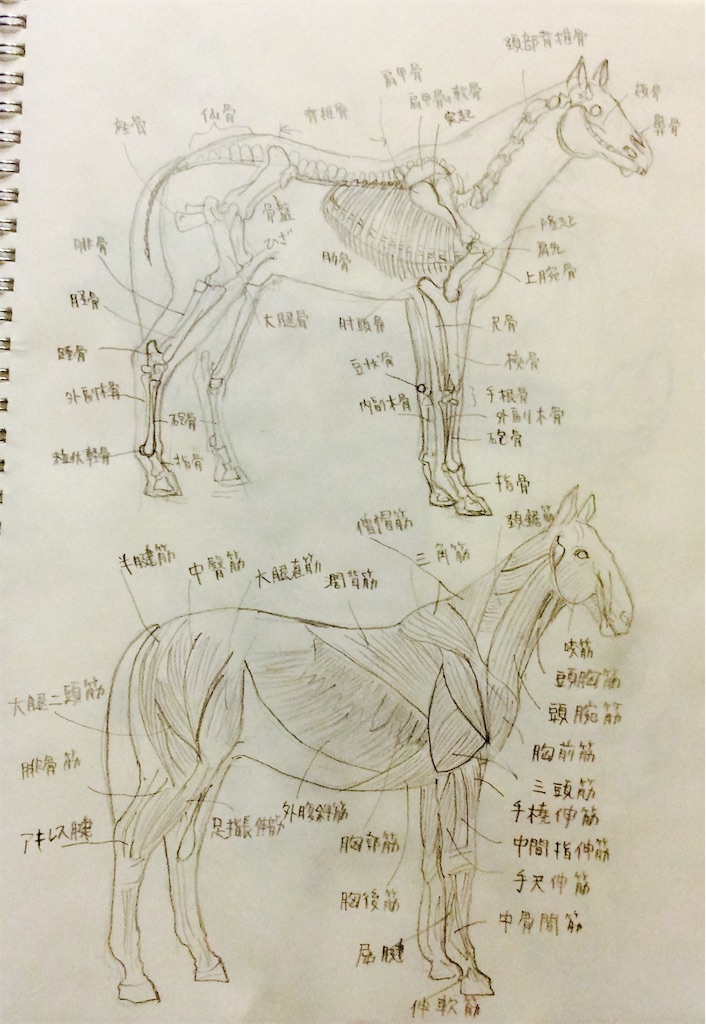 頚部脊椎骨
肩甲骨
肩甲骨軟骨
突起
脊椎骨
仙骨
座骨
骨盤
ひざ
肋骨
隆起
肩先
上腕骨
腓骨
脛骨
大腿骨
肘頭骨
尺骨
踵骨
豆状骨
手根骨
内副木骨
外副木骨
砲骨
砲骨
指骨
指骨
僧帽筋
頚鋸筋
三角筋
半腱筋
中臀筋
大腿直筋
濶背筋
咬筋
頭胸筋
頭腕筋
大腿二頭筋
胸前筋
腓骨筋
三頭筋
手橈伸筋
アキレス腱
足指長伸筋
外腹斜筋
胸部筋
中間指伸筋
手尺伸筋
胸後筋
中骨間筋
屈腱
伸軟筋